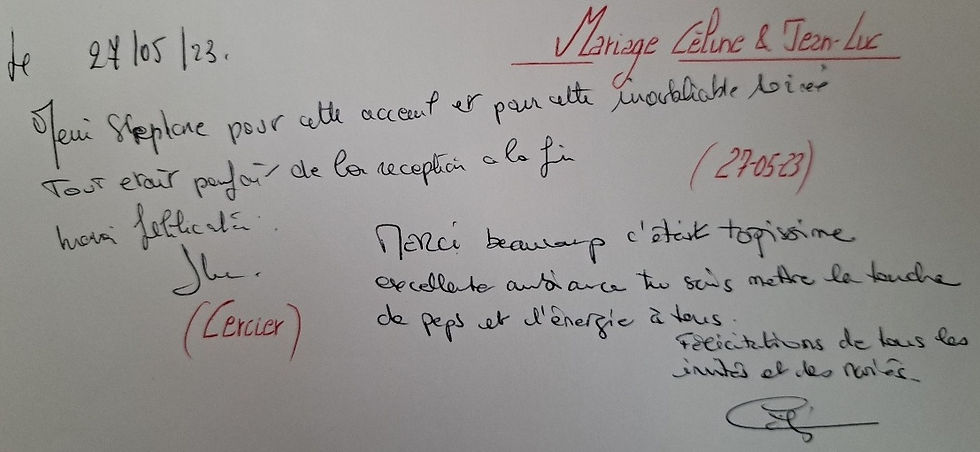 Le 27/05/23.
Mariage Céline & Jean-Luc
Merci Stephane pour cette acceuil et pour cette inoubliable soirée
Tout etait parfait de la reception a la fin
(27-05-23)
(Cercier)
Merci beaucoup c'était topissime
excellente ambiance tu sais mettre la touche
de peps et d'énergie à tous.
Félicitations de tous les
invités et des mariés.